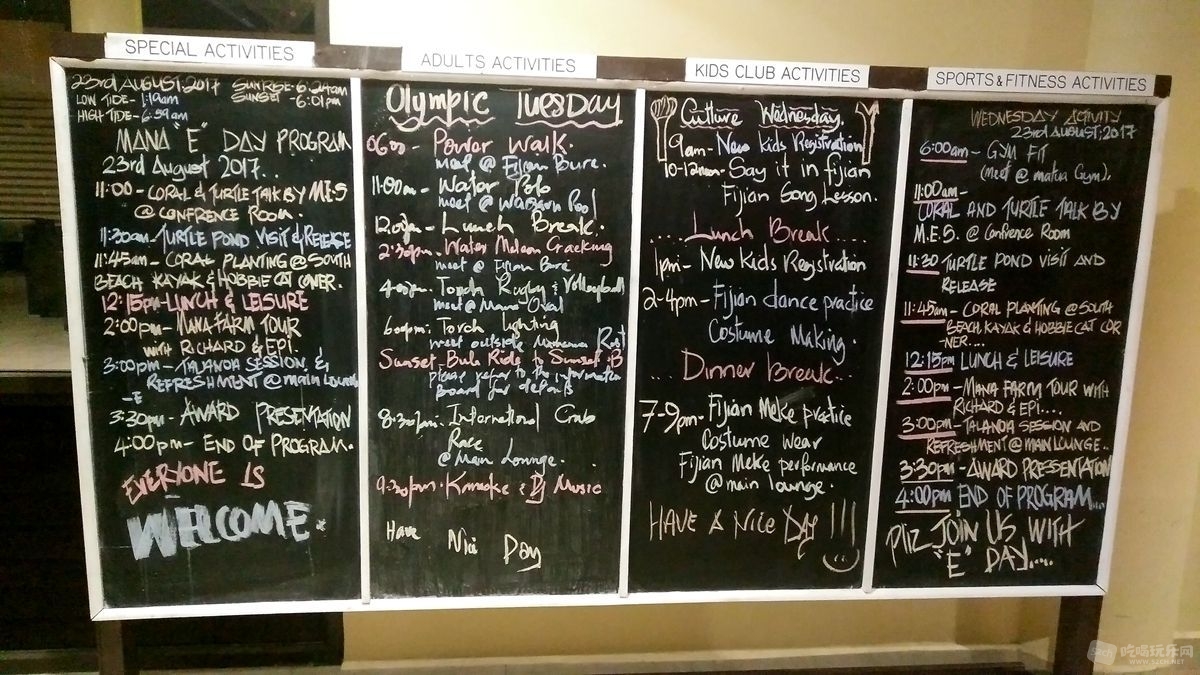 SPECIAL ACTIVITIES
23rd AUGUST:2017 SUNRISE-6:24am
LOW TIDE-1:19am SUNSET -6:01pm
HIGH TIDE-6:59am
MANA "E" DAY PROGRAM
23rd August 2017..
11:00 - CORAL & TURTLE TALK BY M.E.S
@ CONFRENCE ROOM.
11:30am-TURTLE POND VISIT & RELEASE
11:45am - CORAL PLANTING @ SOUTH
BEACH KAYAK & HOBBIE CAT CONER.
12:15pm-LUNCH & LEISURE
2:00pm-MANA FARM TOUR
WITH RICHARD & EPI.
3:00pm-TALANOA SESSION &
REFRESHMENT @ main Lounge
-E
3:30pm-AWARD PRESENTATION
4:00pm- END OF PROGRAM.
EVERYONE IS
WELCOME.
ADULTS ACTIVITIES
Olympic Tuesday
06:00 - Power Walk.
meet @ Fijian Bure.
11:00am- Water Polo
meet @ Pool
12:00pm- Lunch Break.
2:30pm- Water Melon Cracking
meet @ Fijian Bure
4:00pm- Touch Rugby & Volleyball
meet @ Mana Oval
6:00pm: Torch lighting
meet outside Mamanuca Rest
Sunset-Bula Ride to Sunset B
please refer to the information
Board for details
8:30pm- International Crab
Race
@ Main Lounge.
9:30pm- Karaoke & Dj Music
Have Nice Day
KIDS CLUB ACTIVITIES
Culture Wednesday.
9am-New Kids Registration
10-12noon- Say it in Fijian
Fijian Song Lesson.
.....Lunch Break.....
1pm-New Kids Registration
2-4pm-Fijian dance practice
Costume Making.
...Dinner Break..
7-9pm-Fijian Meke practice
Costume wear
Fijian Meke performance
@ main lounge.
HAVE A Nice DAY !!!
SPORTS & FITNESS ACTIVITIES
WEDNESDAY ACTIVITY
23rd AUGUST,2017
6:00am- GYM FIT
(meet @ matua Gym).
11:00am-
CORAL AND TURTLE TALK BY
M.E.S. @ Confrence Room
11:30 TURTLE POND VISIT AND
RELEASE
11:45am- CORAL PLANTING @ SOUTH
BEACH KAYAK & HOBBIE CAT COR
-NER....
12:15pm LUNCH & LEISURE
2:00pm-MANA FARM TOUR WITH
RICHARD & EPI....
3:00pm-TALANOA SESSION AND
REFRESHMENT @ MAIN LOUNGE..
3:30pm-AWARD PRESENTATION
4:00pm END OF PROGRAM....
Pliz JOIN US WITH
"E" DAY....
吃喝玩乐网